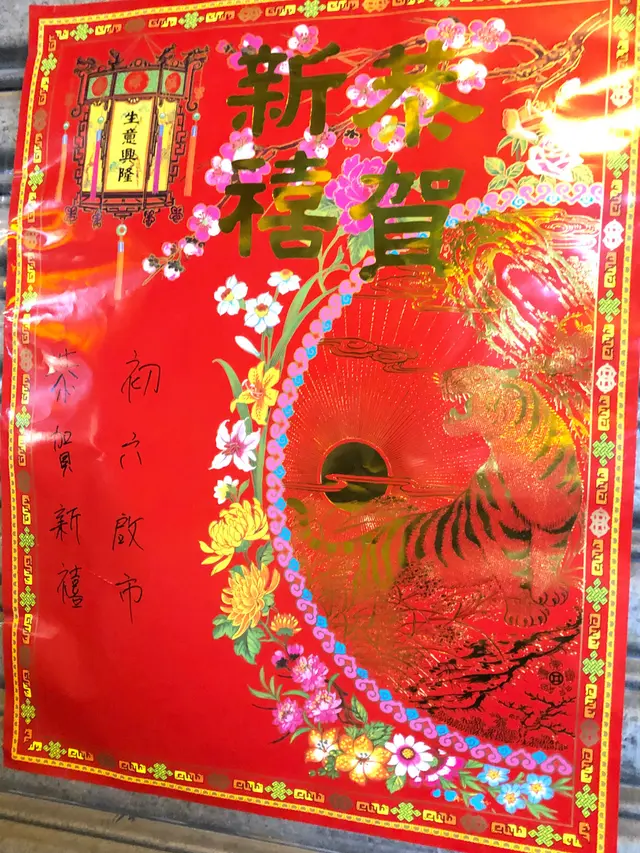 恭賀
新禧
生意興隆
初六啟市
恭賀新禧